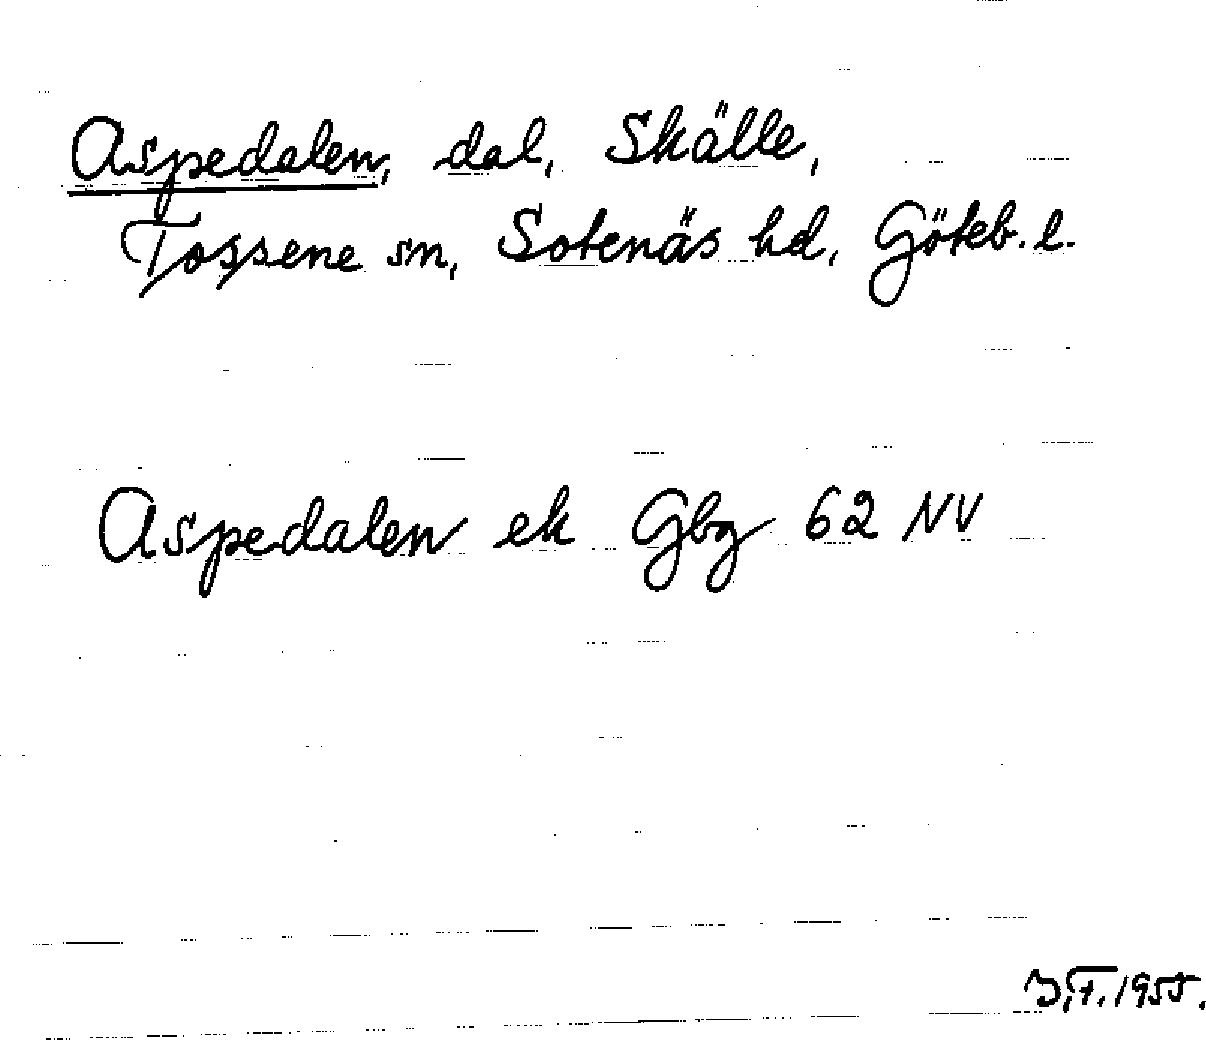 Aspedalen, dal, Skälle,
Tossene sn, Sotenäs hd, Göteb. l.
Aspedalen ek Gbg 62 NV
1955.